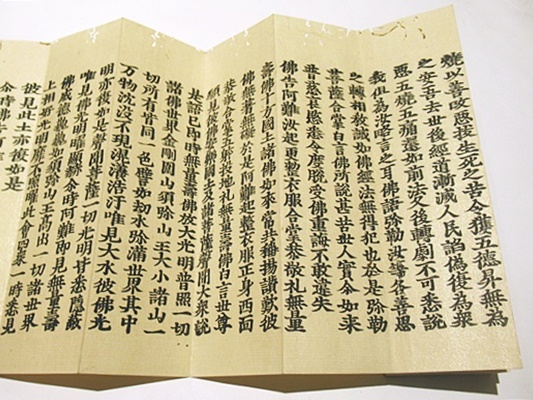 燒以善攻惡拔生死之苦令獲五德昇無為
之安吾去世後經道漸滅人民諂偽復為眾
惡五燒五痛還如前法久後轉劇不可悉說
我但為汝略言之耳佛語弥勒汝等各善思
之轉相教誡如佛經法無得犯也於是弥勒
菩薩合掌白言佛所說甚苦世人實尒如來
普慈哀愍悉令度脫受佛重誨不敢違失
佛告阿難汝起更整衣服合掌恭敬礼無量
壽佛十方國土諸佛如來常共稱揚讚歎彼
佛無著無礙於是阿難起整衣服正身西面
恭敬合掌五體投地礼無量壽佛白言世尊
願見彼佛安樂國土及諸菩薩聲聞大衆說
是語已即時無量壽佛放大光明普照一切
諸佛世界金剛圍山須弥山王大小諸山一
切所有皆同一色譬如劫水弥滿世界其中
万物沈沒不現滉瀁浩汗唯見大水彼佛光
明亦復如是聲聞菩薩一切光明皆悉隱蔽
唯見佛光明曜顯赫尒時阿難即見無量壽
佛威德巍巍如須弥山王高出一切諸世界
上相好光明靡不照曜此會四衆一時悉見
彼見此土亦復如是
尒時佛告